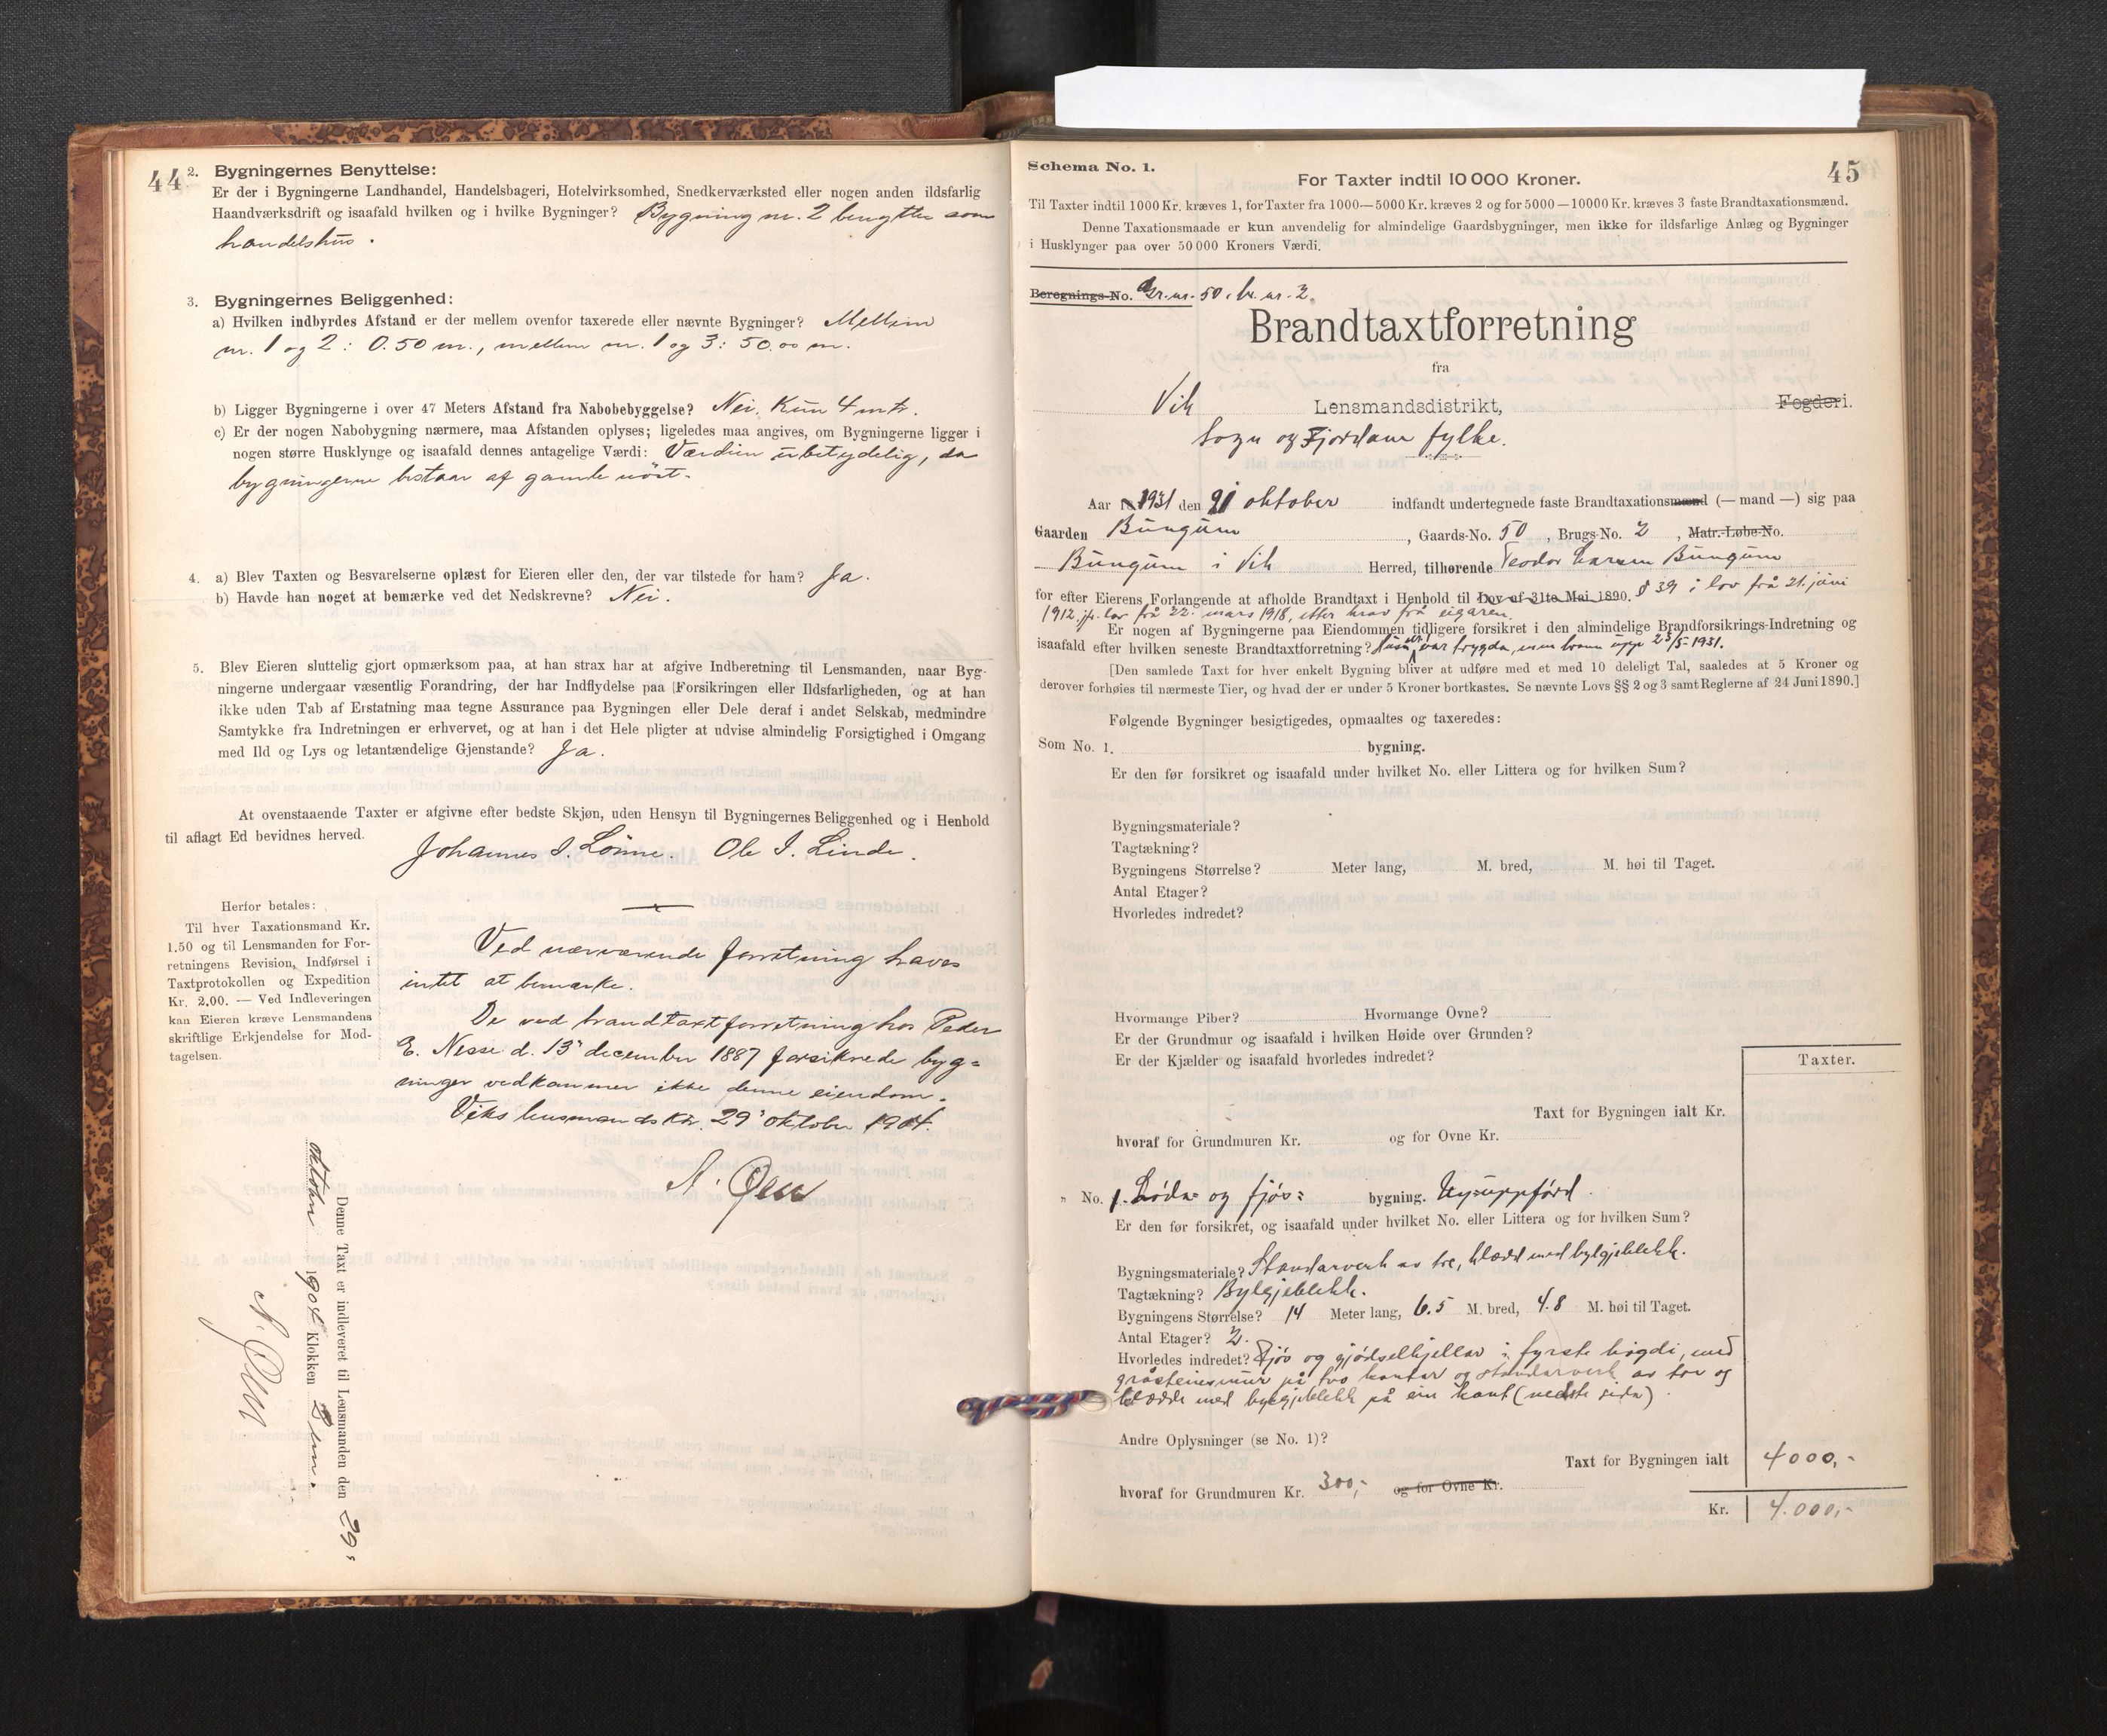 44
2. Bygningernes Benyttelse:
Er der i Bygningerne Landhandel, Handelsbageri, Hotelvirksomhed, Snedkerværksted eller nogen anden ildsfarlig
Haandværksdrift og isaafald hvilken og i hvilke Bygninger? Bygning nr. 2 benyttes som
handelshus.
3. Bygningernes Beliggenhed:
a) Hvilken indbyrdes Afstand er der mellem ovenfor taxerede eller nævnte Bygninger? Mellem
nr. 1 og 2: 0.50 m., mellem nr. 1 og 3: 50.00 m.
b) Ligger Bygningerne i over 47 Meters Afstand fra Nabobebyggelse? Nei. Kun 4 mtr.
c) Er der nogen Nabobygning nærmere, maa Afstanden oplyses; ligeledes maa angives, om Bygningerne ligger i
nogen større Husklynge og isaafald dennes antagelige Værdi: Værdien ubetydelig, da
bygningerne bestaar af gamle nöst.
4. a) Blev Taxten og Besvarelserne oplæst for Eieren eller den, der var tilstede for ham? Ja.
b) Havde han noget at bemærke ved det Nedskrevne? Nei.
5. Blev Eieren sluttelig gjort opmærksom paa, at han strax har at afgive Indberetning til Lensmanden, naar Byg-
ningerne undergaar væsentlig Forandring, der har Indflydelse paa Forsikringen eller Ildsfarligheden, og at han
ikke uden Tab af Erstatning maa tegne Assurance paa Bygningen eller Dele deraf i andet Selskab, medmindre
Samtykke fra Indretningen er erhvervet, og at han i det Hele pligter at udvise almindelig Forsigtighed i Omgang
med Ild og Lys og letantændelige Gjenstande? Ja.
At ovenstaaende Taxter er afgivne efter bedste Skjøn, uden Hensyn til Bygningernes Beliggenhed og i Henhold
til aflagt Ed bevidnes herved.
Johannes I. Lönne. Ole I. Linde.
Herfor betales:
Til hver Taxationsmand Kr.
1.50 og til Lensmanden for For-
retningens Revision, Indførsel i
Taxtprotokollen og Expedition
Kr. 2.00. — Ved Indleveringen
kan Eieren kræve Lensmandens
skriftlige Erkjendelse for Mod-
tagelsen.
Ved nærværende forretning haves
intet at bemærke.
De ved brandtaxtforretning hos Peder
E. Nesse d. 13' december 1887 forsikrede byg=
ninger vedkommer ikke denne eiendom.
Viks lensmandsktr. 29' oktober 1904.
A. Øen
Denne Taxt er indleveret til Lensmanden den 29'
oktober 1904 Klokken 3 em.
A. Øen
Schema No. 1.
45
For Taxter indtil 10 000 Kroner.
Til Taxter indtil 1000 Kr. kræves 1, for Taxter fra 1000—5000 Kr. kræves 2 og for 5000—10000 Kr. kræves 3 faste Brandtaxationsmænd.
Denne Taxationsmaade er kun anvendelig for almindelige Gaardsbygninger, men ikke for ildsfarlige Anlæg og Bygninger
i Husklynger paa over 50 000 Kroners Værdi.
Beregnings-No. Gr. nr. 50. br. nr. 2.
Brandtaxtforretning
fra
Vik Lensmandsdistrikt, Fogderi.
Sogn og Fjordane fylke.
Aar 1931 den 21 oktober indfandt undertegnede faste Brandtaxationsmænd (— mand —) sig paa
Gaarden Bungum, Gaards-No. 50, Brugs-No. 2, Matr.-Løbe-No.
Bungum i Vik Herred, tilhørende Teodor Larsen Bungum
for efter Eierens Forlangende at afholde Brandtaxt i Henhold til Lov af 31te Mai 1890. § 39 i lov frå 21. juni
1912. jfr. lov frå 22. mars 1918, etter krav frå eigaren.
Er nogen af Bygningerne paa Eiendommen tidligere forsikret i den almindelige Brandforsikrings-Indretning og
isaafald efter hvilken seneste Brandtaxtforretning? var trygda, men brann upp 23/5-1931.
[Den samlede Taxt for hver enkelt Bygning bliver at udføre med et med 10 deleligt Tal, saaledes at 5 Kroner og
derover forhøies til nærmeste Tier, og hvad der er under 5 Kroner bortkastes. Se nævnte Lovs §§ 2 og 3 samt Reglerne af 24 Juni 1890.]
Følgende Bygninger besigtigedes, opmaaltes og taxeredes:
Som No. 1. bygning.
Er den før forsikret og isaafald under hvilket No. eller Littera og for hvilken Sum?
Bygningsmateriale?
Tagtækning?
Bygningens Størrelse? Meter lang, M. bred, M. høi til Taget.
Antal Etager?
Hvorledes indredet?
Hvormange Piber? Hvormange Ovne?
Er der Grundmur og isaafald i hvilken Høide over Grunden?
Er der Kjælder og isaafald hvorledes indredet?
Taxter.
Taxt for Bygningen ialt Kr.
hvoraf for Grundmuren Kr. og for Ovne Kr.
" No. 1. Löda= og fjös= bygning. Ny-uppförd.
Er den før forsikret, og isaafald under hvilket No. eller Littera og for hvilken Sum?
Bygningsmateriale? Standarverk av tre, klædd med bylgjeblekk.
Tagtækning? Bylgjeblekk.
Bygningens Størrelse? 14 Meter lang, 6.5 M. bred, 4.8 M. høi til Taget.
Antal Etager? 2.
Hvorledes indredet? Fjös og gjödselkjellar i fyrste högdi, med
gråsteinsmur på tvo kantar og standarverk av tre og
klædde med bylgjeblekk på ein kant (nedste sida).
Andre Oplysninger (se No. 1)?
Taxt for Bygningen ialt 4000,-
hvoraf for Grundmuren Kr. 300,- og for Ovne Kr.
Kr. 4.000,-